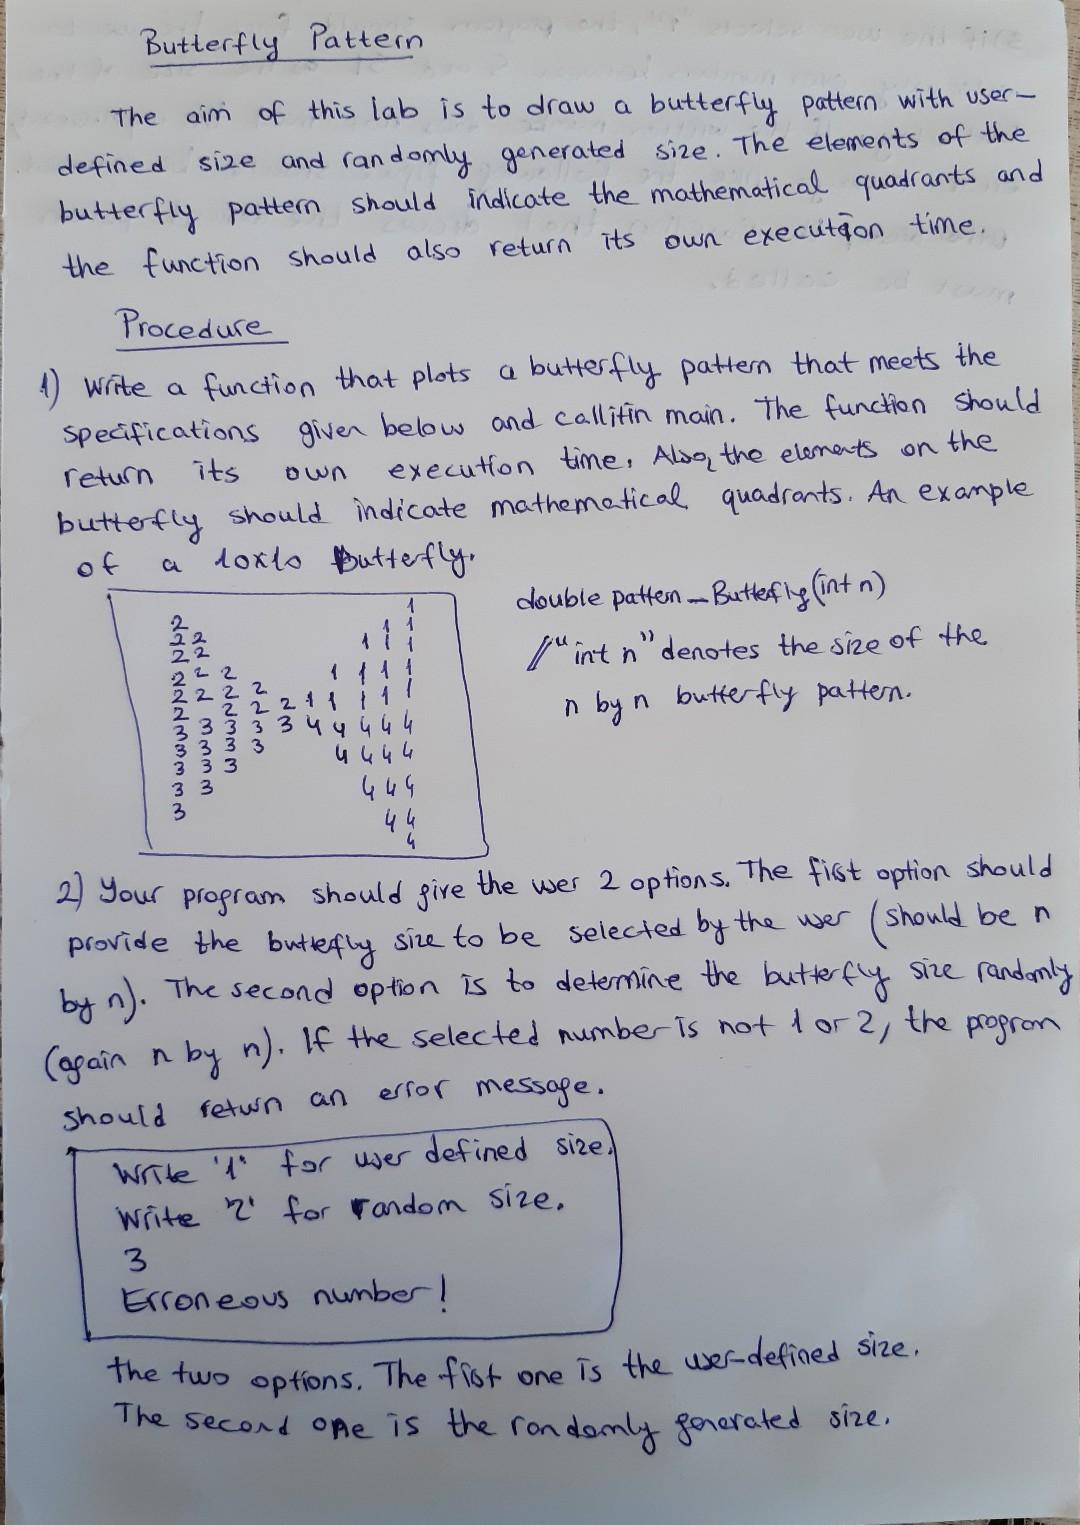 Butterfly Pattern
The aim of this lab is to draw a butterfly pattern with user-
defined size and randomly generated size. The elements of the
butterfly pattern should indicate the mathematical quadrants and
the function should also return its own execution time.
Procedure
1) Write a function that plots a butterfly pattern that meets the
specifications given below and call it in main. The function should
return its own execution time. Also, the elements on the
butterfly should indicate mathematical quadrants. An example
of a 10x10 Butterfly.
1
2 1 1
2 2 1 1 1
2 2
2 2 2 1 1 1 1
2 2 2 2 1 1
2 2 2 2 1 1
3 3 3 3 3 4 4 4 4 4
3 3 3 3 4 4 4 4
3 3 3 4 4 4
3 3 4 4
3 4
double pattern_Butterfly(int n)
//"int n" denotes the size of the
n by n butterfly pattern.
2) Your program should give the user 2 options. The first option should
provide the butterfly size to be selected by the user (should be n
by n). The second option is to determine the butterfly size randomly
(again n by n). If the selected number is not 1 or 2, the program
should return an error message.
Write '1' for user defined size.
Write '2' for random size.
3
Erroneous number!
the two options. The fist one is the user-defined size.
The second one is the randomly generated size.